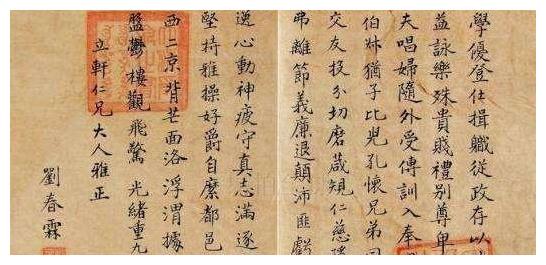 學優登仕攝職從政存以
益詠樂殊貴賤禮別尊卑
夫唱婦隨外受傅訓入奉
伯叔猶子比兒孔懷兄弟同
交友投分切磨箴規仁慈隱
弗離節義廉退顛沛匪虧
逸心動神疲守真志滿逐
堅持雅操好爵自縻都邑
西二京背芒面洛浮渭據
盤鬱樓觀飛驚 光緒重九
立軒仁兄大人雅正
劉春霖